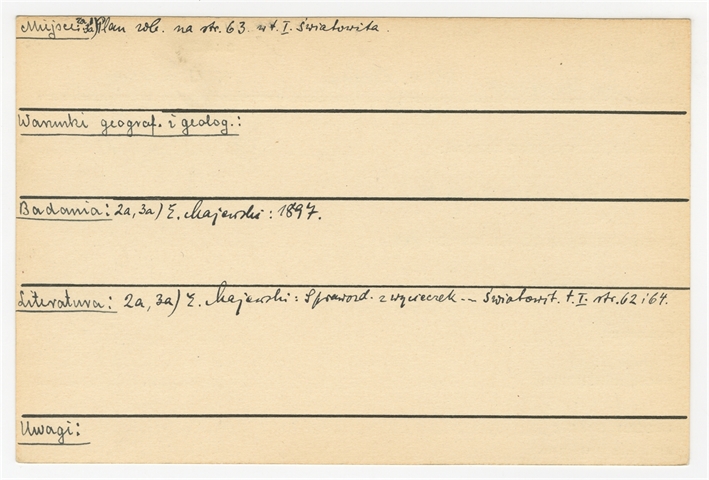 Miejsce: 2a, 3a) Plan wb. na str. 63. w t. I. Światowita.
Warunki geograf. i geolog.:
Badania: 2a, 3a) E. Majewski: 1897.
Literatura: 2a, 3a) E. Majewski: Sprawozd. z wycieczek -- Światowit. t. I. str. 62 i 64.
Uwagi: